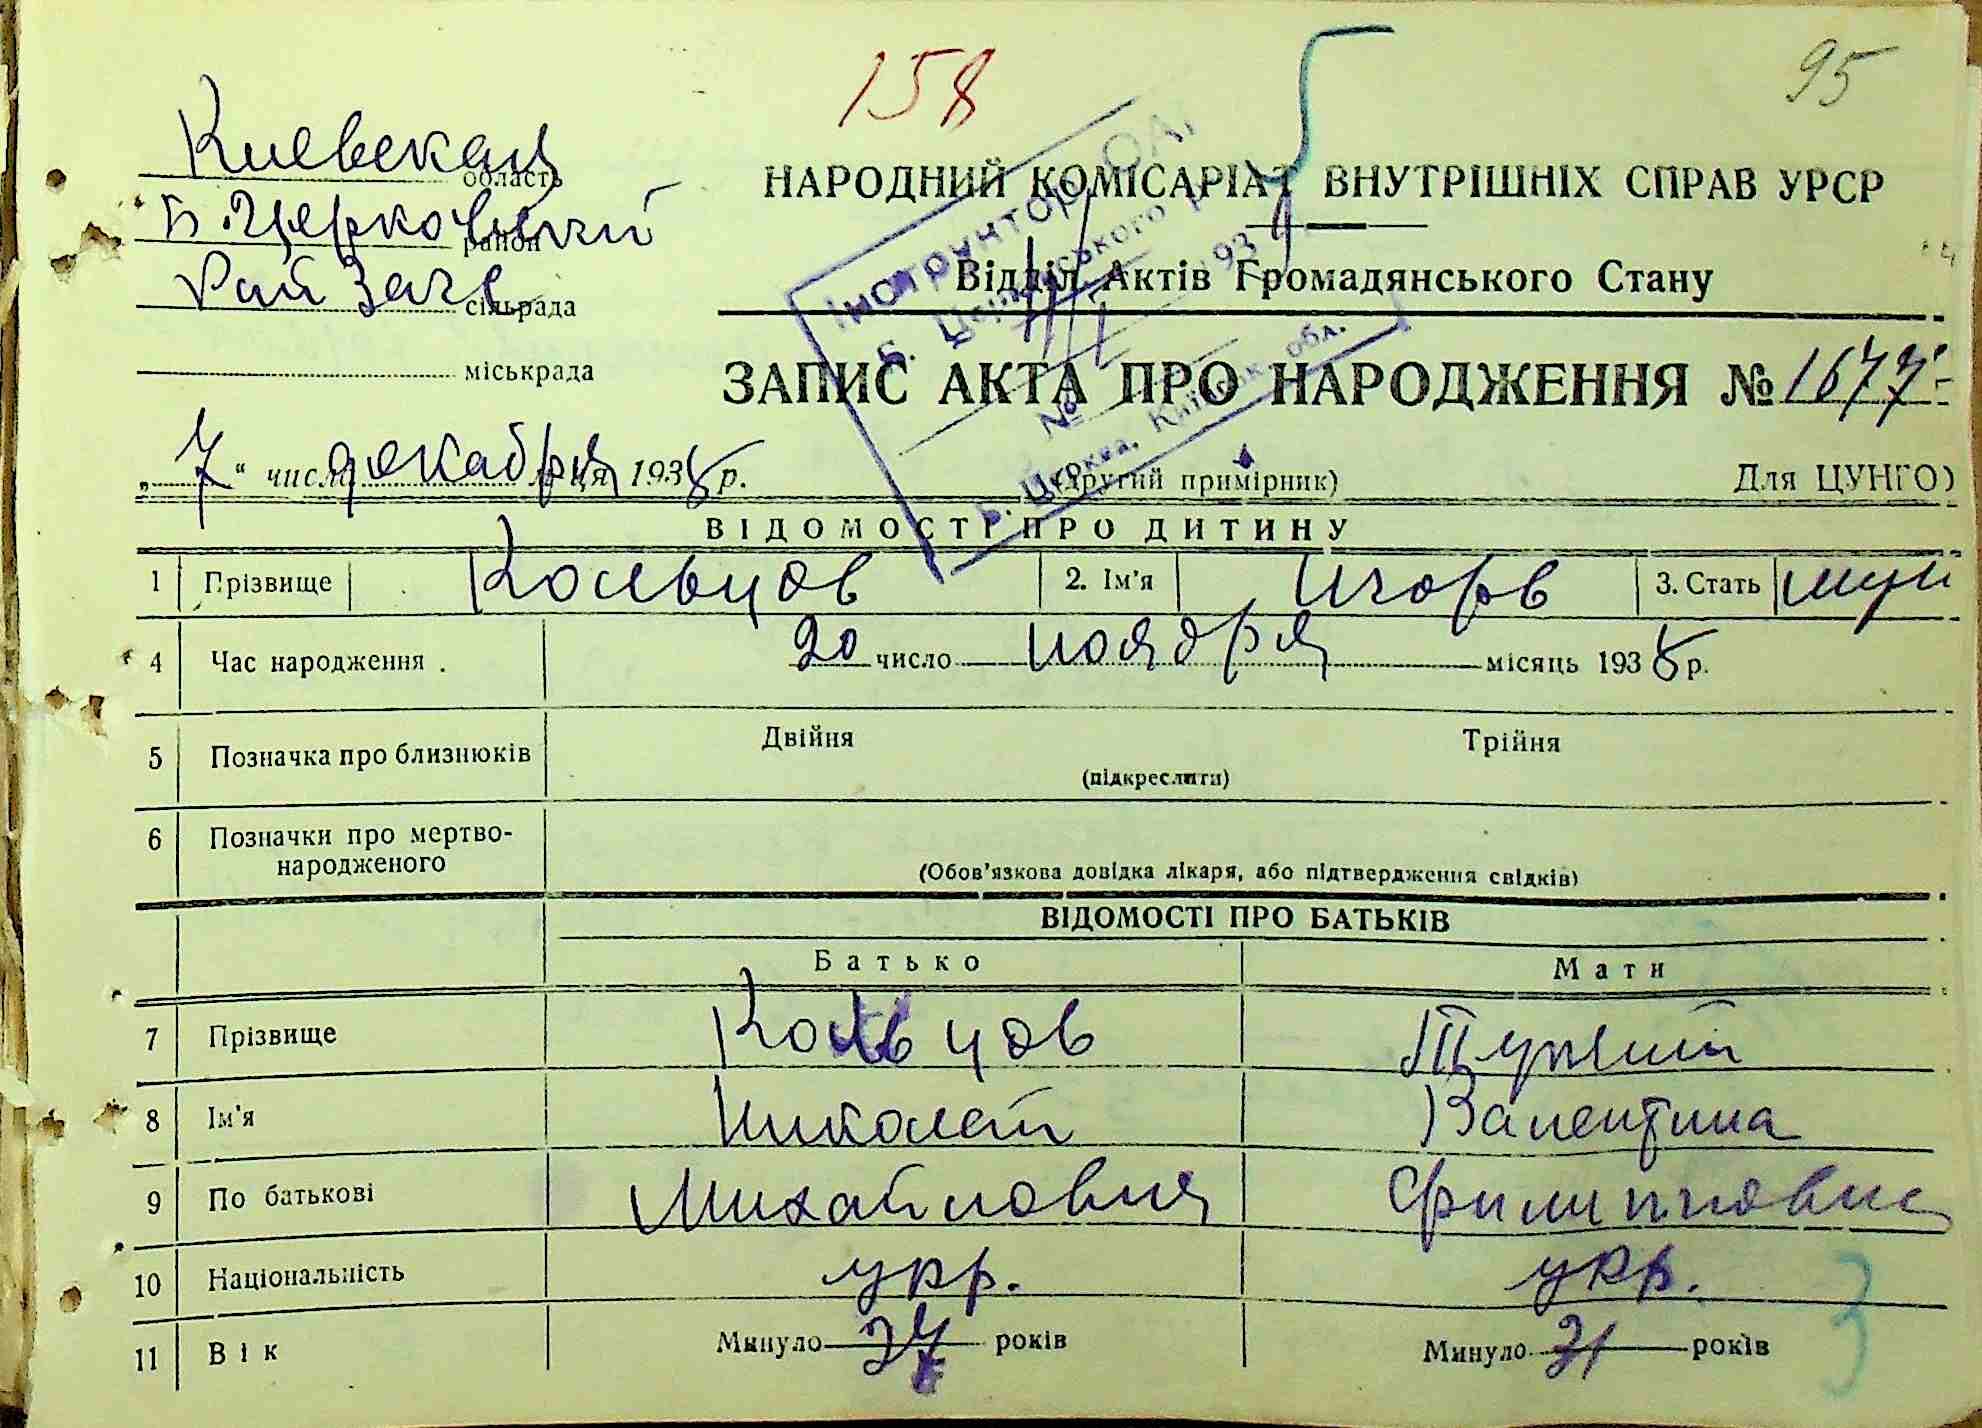 158
95
Киевская область
Б. Церковский район
Рай Загс сільрада
міськрада
НАРОДНИЙ КОМІСАРІАТ ВНУТРІШНІХ СПРАВ УРСР
Відділ Актів Громадянського Стану
ЗАПИС АКТА ПРО НАРОДЖЕННЯ № 1677
„7“ число декабря м-ця 1938 р.
(Другий примірник)
Для ЦУНГО)
ВІДОМОСТІ ПРО ДИТИНУ
1 Прізвище Кольцов 2. Ім'я Игорь 3. Стать муж
4 Час народження . 20 число ноября місяць 1938 р.
5 Позначка про близнюків Двійня Трійня
(підкреслити)
6 Позначки про мертво-
народженого
(Обов'язкова довідка лікаря, або підтвердження свідків)
ВІДОМОСТІ ПРО БАТЬКІВ
Батько Мати
7 Прізвище Кольцов
8 Ім'я Николай Валентина
9 По батькові Михайлович Филипповна
10 Національність укр. укр.
11 Вік Минуло років Минуло 31 років
3